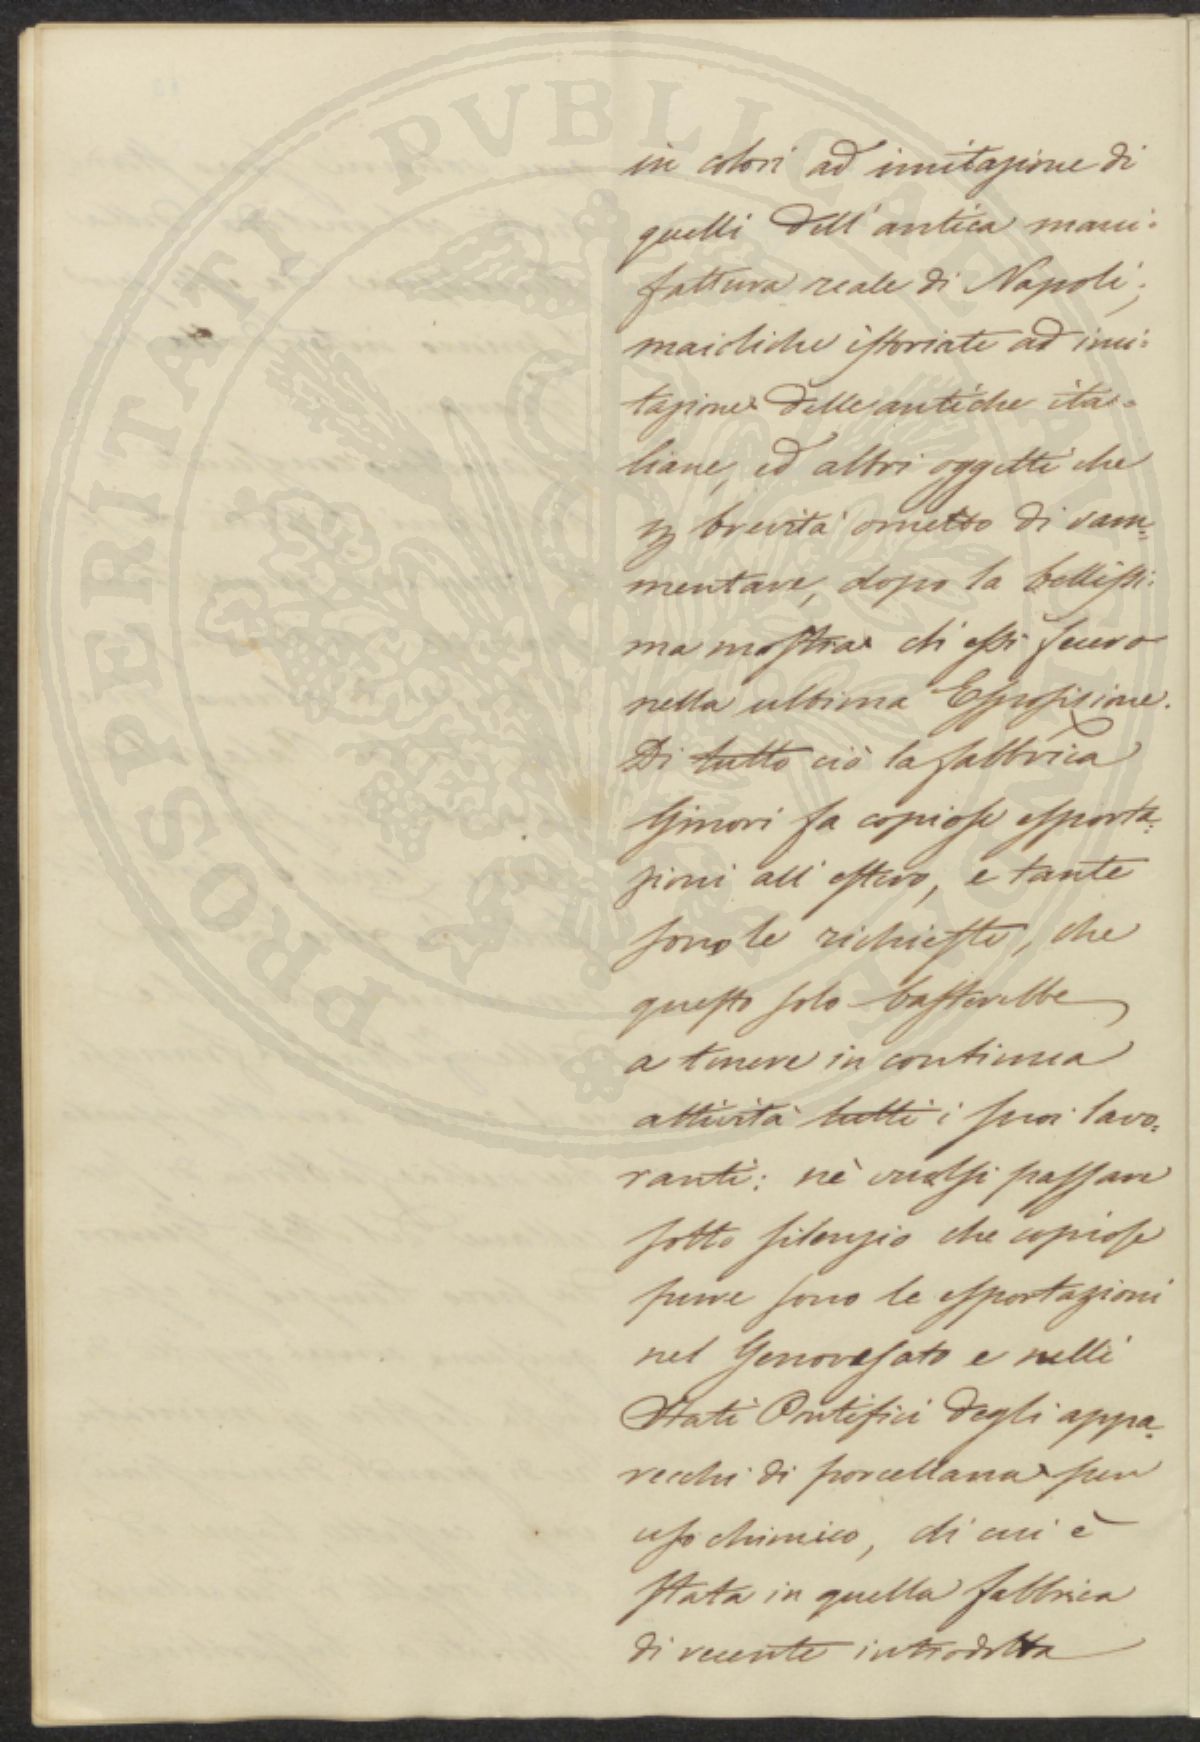 PROSPERITATI PUBLICAE AUGENDAE
in colori ad imitazione di
quelli dell'antica mani:
fattura reale di Napoli;
maioliche istoriate ad imi:
tazione delle antiche ita=
liane, ed altri oggetti che
p brevità ometto di ram=
mentare, dopo la bellissi:
ma mostra di essi fecero
nella ultima Esposizione.
Di tutto ciò la fabbrica
Ginori fa copiose esporta=
zioni all'estero, e tante
sono le richieste, che
questo solo basterebbe
a tenere in continua
attività tutti i suoi lavo=
ranti: nè vuolsi passare
sotto silenzio che copiose
pure sono le esportazioni
nel Genovesato e nelli
Stati Pontifici degli appa=
recchi di porcellana per
uso chimico, di cui è
stata in quella fabbrica
di recente introdotta